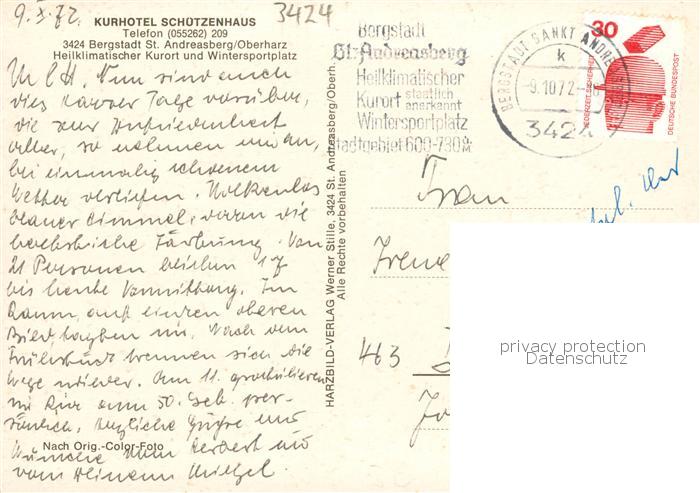 9.X.72.
KURHOTEL SCHÜTZENHAUS
Telefon (055262) 209
3424 Bergstadt St. Andreasberg/Oberharz
Heilklimatischer Kurort und Wintersportplatz
3424
Nun sind auch
Tage vorüber,
die zur Zufriedenheit
aller, so nehmen wir an,
bei einmalig schönem
Wetter verliefen. Wolkenlos
blauer Himmel,
herbstliche Färbung. Von
21 Personen hielten 17
bis heute Vormittag. Im
Raum, auf
Bild, tagten wir. Nach dem
Frühstück trennen sich die
Wege wieder. Am 11. gratulieren
wir zum 50. Geb. per-
sönlich. Herzliche Grüße und
Wünsche Herbert und
vom
Nach Orig.-Color-Foto
HARZBILD-VERLAG Werner Stille, 3424 St. Andreasberg/Oberh.
Alle Rechte vorbehalten
Bergstadt
St. Andreasberg
Heilklimatischer
Kurort staatlich anerkannt
Wintersportplatz
Stadtgebiet 600-730 ü.M
BERGSTADT SANKT ANDREASBERG
k
-9.10.72.-
3424
30
JEDERZEIT SICHERHEIT
DEUTSCHE BUNDESPOST
Frau
Irene
463
privacy protection
Datenschutz